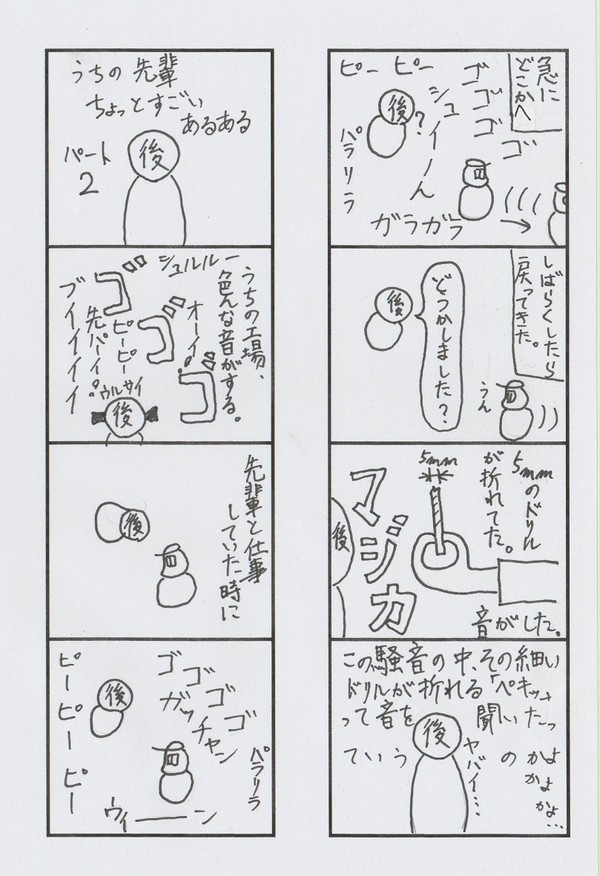 うちの先輩
ちょっとすごい
あるある
パート
2
後
うちの工場、
色んな音がする。
シュルルー
ゴ
オーイ!
ゴ
ゴ
ピーピー
先パーイ!
ブイイイイイ
ウルサイ
後
先輩と仕事
していた時に
後
ゴゴゴゴ
ガッチャン
パラリラ
後
ピーピーピー
ウィーーン
急に
どこかへ
ゴゴゴゴ
シュイーん
ピーピー
後
?
パラリラ
ガラガラ
しばらくしたら
戻ってきた。
どうかしました?
後
うん
5mmのドリル
が折れてた。
5mm
マジカ
後
音がした。
この騒音の中、その細い
ドリルが折れる「ペキッ」さ
って音を聞いたっ
ていうのかよ
かよ
かよ…
後
ヤバイ…